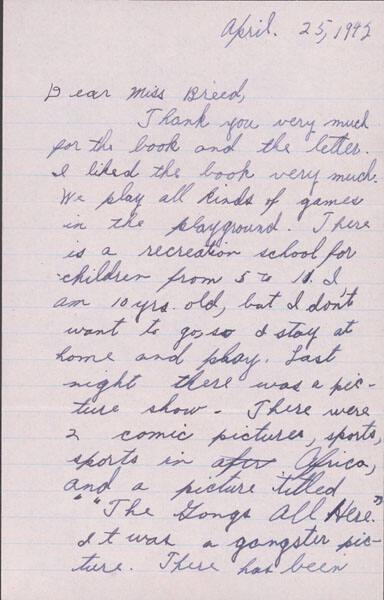 April. 25, 1942
Dear Miss Breed,
Thank you very much
for the book and the letter.
I liked the book very much.
We play all kinds of games
in the playground. There
is a recreation school for
children from 5 to 11. I
am 10 yrs. old, but I don't
want to go, so I stay at
home and play. Last
night there was a pic-
ture show. There were
2 comic pictures, sports,
sports in afri Africa,
and a picture titled
" "The Gongs All Here."
It was a gangster pic-
ture. There has been